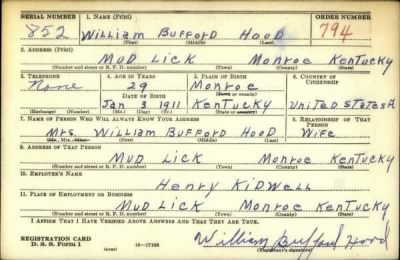 SERIAL NUMBER 1. NAME (Print) ORDER NUMBER
852 William Bufford Hood 794
(First) (Middle) (Last)
2. ADDRESS (Print)
Mud Lick Monroe Kentucky
(Number and street or R. F. D. number) (Town) (County) (State)
3. TELEPHONE 4. AGE IN YEARS 5. PLACE OF BIRTH 6. COUNTRY OF CITIZENSHIP
None 29 Monroe
DATE OF BIRTH (Town or county)
Jan 3 1911 Kentucky United States A
(Exchange) (Number) (Mo.) (Day) (Yr.) (State or country)
7. NAME OF PERSON WHO WILL ALWAYS KNOW YOUR ADDRESS 8. RELATIONSHIP OF THAT PERSON
Mrs. William Bufford Hood Wife
(Mr., Mrs., Miss) (First) (Middle) (Last)
9. ADDRESS OF THAT PERSON
Mud Lick Monroe Kentucky
(Number and street or R. F. D. number) (Town) (County) (State)
10. EMPLOYER'S NAME
Henry Kidwell
11. PLACE OF EMPLOYMENT OR BUSINESS
Mud Lick Monroe Kentucky
(Number and street or R. F. D. number) (Town) (County) (State)
I AFFIRM THAT I HAVE VERIFIED ABOVE ANSWERS AND THAT THEY ARE TRUE.
REGISTRATION CARD
D. S. S. Form 1 (over) 16—17105 William Bufford Hood
(Registrant's signature)